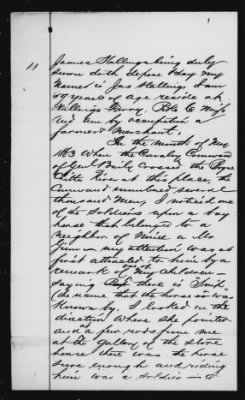 1
11
James Stallings being duly
sworn doth depose & say My
name is Jas Stallings I am
59 years of age reside at
Stallings Ferry, P&t C Miss
and am by occupation a
farmer & Merchant.
In the Month of Nov
1863 When the Cavalry Command
of Genl crossed the Bogue
Chitto River at this place, the
Command numbered several
thousand Men, I noticed one
of the Soldiers upon a bay
horse that belonged to a
Neighbor of Mine a Mr
my attention was at
first attracted to him by a
remark of My children
saying there is
(the name that the horse was
Known by. I looked in the
direction where she pointed
and a few rods from me
at the Gallery of the store
house there was the horse
sure enough and riding
him was a soldier